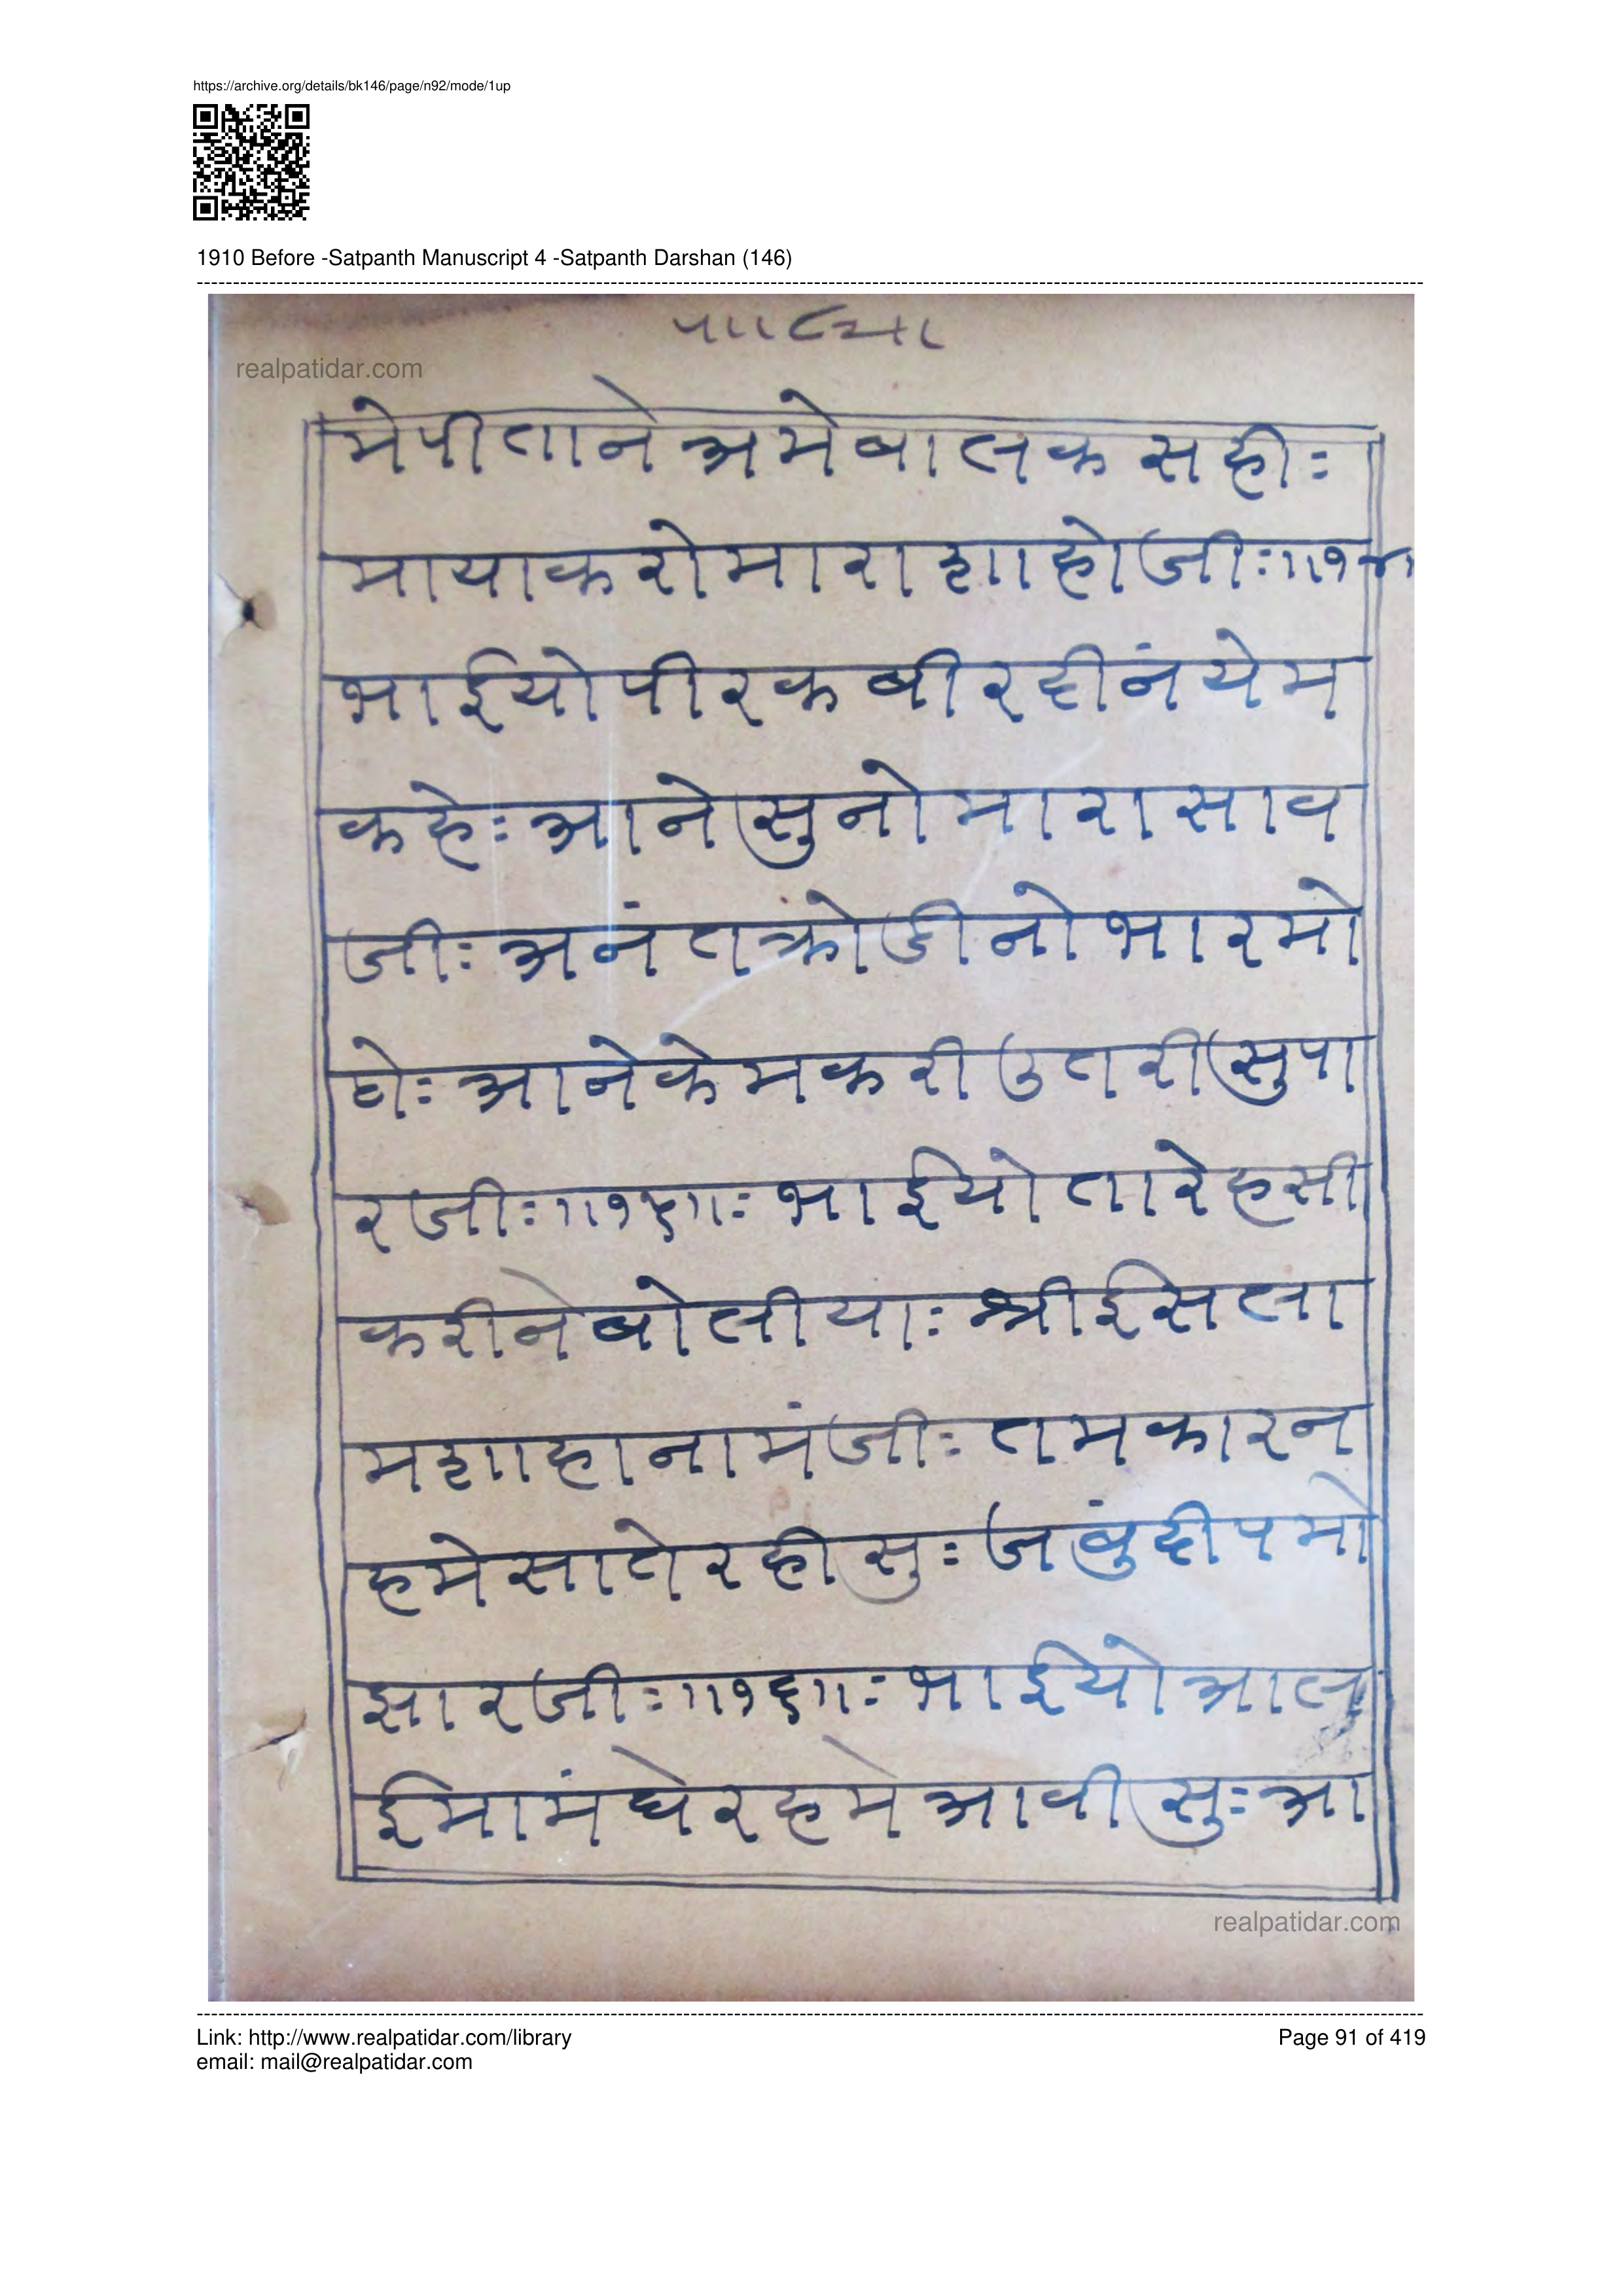 https://archive.org/details/bk146/page/n92/mode/1up
1910 Before -Satpanth Manuscript 4 -Satpanth Darshan (146)
realpatidar.com
मेपीतानेअमेबालकसहीः
मायाकरोमाराशाहोजीः॥१४
भाईयोपीरकबीरदीनंयेम
कहेःआनेसुनोमारासाव
जीःअनंतक्रोडीनोभारमो
घेःआनेकेमकरीउतरीसुपा
रजीः॥१५॥ःभाईयोतारेहसी
करीनेबोलीयाःश्रीईसला
मशाहानामंजीःतमकारन
हमेसातेरहीसुःजंबुदीपमो
झारजीः॥१६॥ःभाईयोआल
ईमामंघेरहमेआवीसुःआ
realpatidar.com
Link: http://www.realpatidar.com/library
Page 91 of 419
email: mail@realpatidar.com